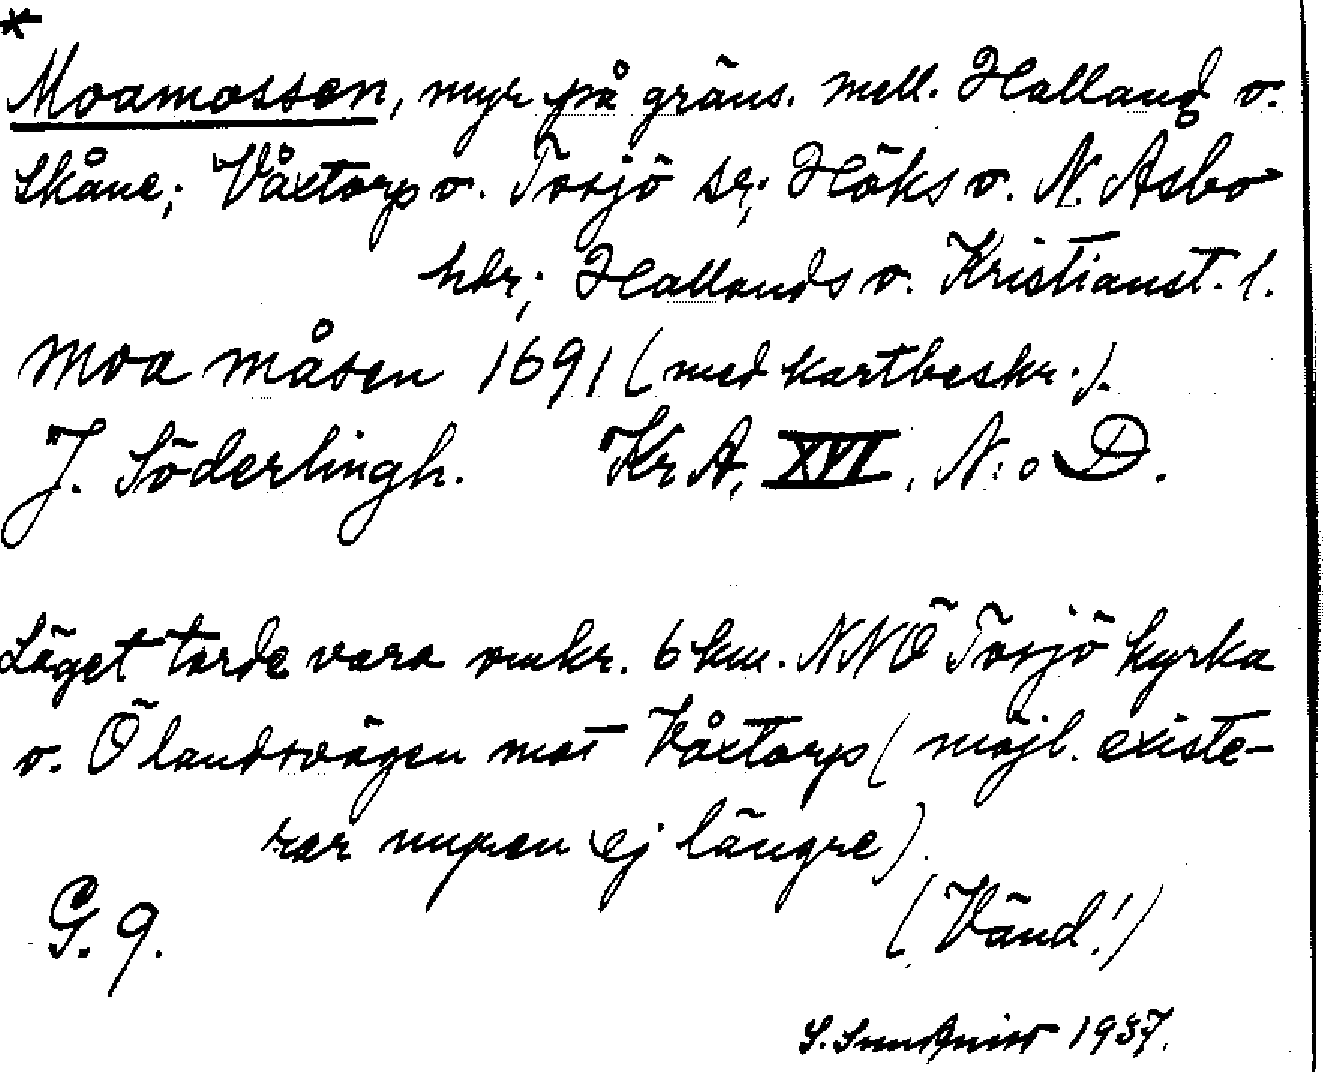 *
Moamossen, myr på gräns. mell. Halland o.
Skåne; Våxtorp o. Tosjö sr; Höks o. N. Åsbo
hdr; Hallands o. Kristianst. l.
Moa måsen 1691 (med kartbeskr.).
J. Söderlingh. KrA, XVI, N:o D.
Läget torde vara omkr. 6 km. NNÖ Tosjö kyrka
o. Ö landsvägen mot Våxtorp (möjl. existe-
rar myren ej längre).
G. 9. (Vänd!)
S. Sundqvist 1937.